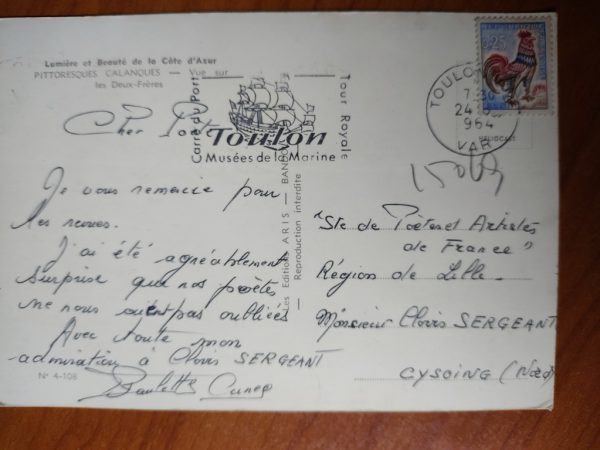 Lumière et Beauté de la Côte d'Azur
PITTORESQUES CALANQUES — Vue sur
les Deux-Frères
Carré du Port
Toulon
Musées de la Marine
Tour Royale
TOULON
7 30
24
964
VAR
0,25
Cher Poète
Je vous remercie pour
les revues.
J'ai été agréablement
surprise que nos poètes
ne nous oient pas oubliées
Avec toute mon
admiration à Clovis SERGEANT
Paulette
Nº 4-108
Les Editions ARIS — BANDOL
Reproduction interdite
"Sté de Poètes et Artistes
de France"
Région de Lille
Monsieur Clovis SERGEANT
CYSOING (Nord)